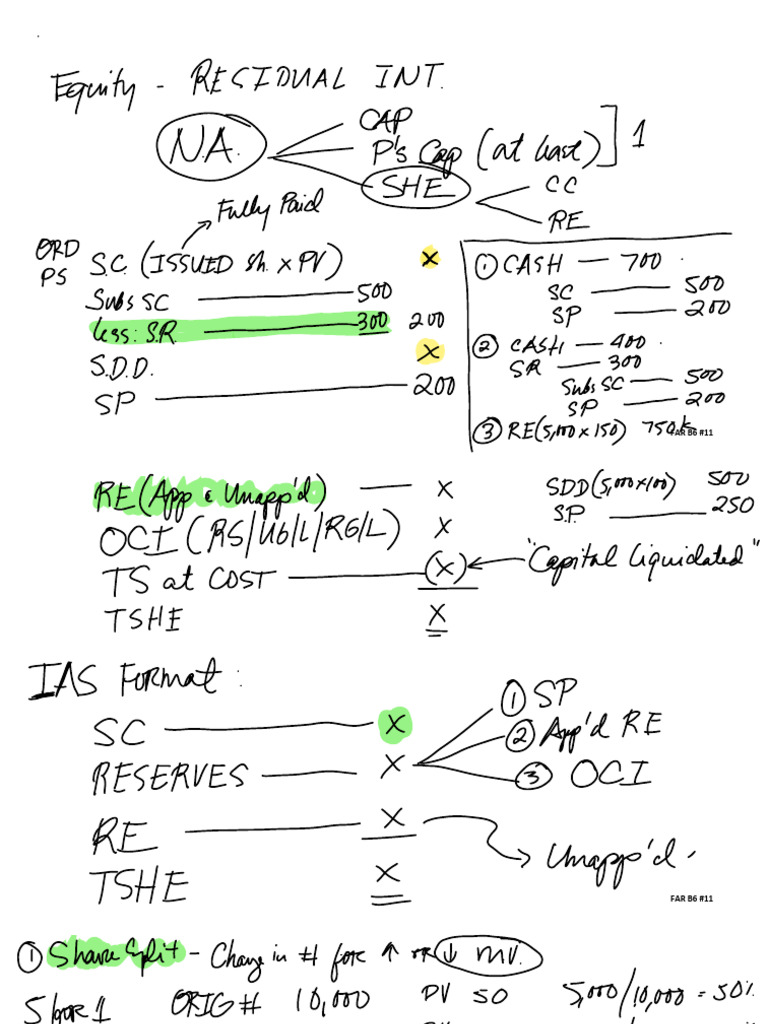 Equity - RESIDUAL INT.
N.A.
CAP
P's Cap (at least) ] 1
SHE
CC
RE
Fully Paid
ORD
PS
S.C. (ISSUED sh. x PV) x
Subs SC 500
less: S.R. 300 200
S.D.D. x
SP 200
① CASH — 700
SC 500
SP 200
② CASH — 400
SR — 300
Subs SC 500
SP 200
③ RE (5,000 x 150) 750k
FAR B6 #11
SDD (5,000 x 100) 500
S.P. 250
RE (App & Unapp'd) — x
OCI (RS/UG/L/RG/L) x
TS at COST (x)
"Capital Liquidated"
TSHE x
IAS Format:
SC x
RESERVES x
① SP
② App'd RE
③ OCI
RE x
Unapp'd
TSHE x
FAR B6 #11
① Share Split - Change in # for ↑ or ↓ MV.
ORIG # 10,000 PV 50 5,000/10,000 = 50%